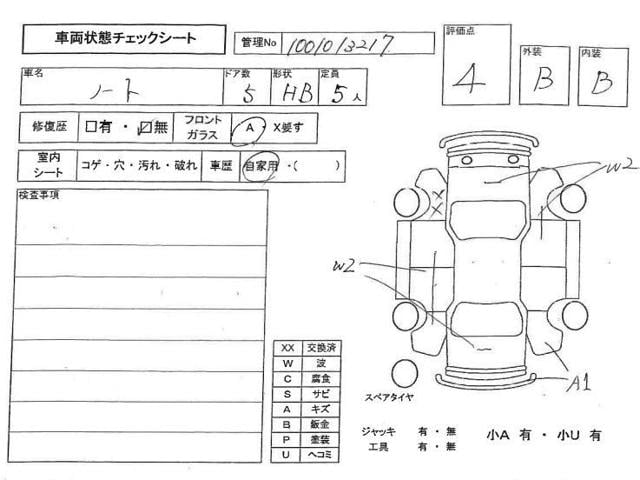 車両状態チェックシート
管理No 1001013217
評価点
4
外装
B
内装
B
車名
ノート
ドア数
5
形状
HB
定員
5人
修復歴
□有・☑無
フロントガラス
A・X要す
室内シート
コゲ・穴・汚れ・破れ
車歴
自家用・( )
検査事項
W2
X
X
W2
A1
XX 交換済
W 波
C 腐食
S サビ
A キズ
B 鈑金
P 塗装
U ヘコミ
スペアタイヤ
ジャッキ 有・無
工具 有・無
小A 有・小U 有